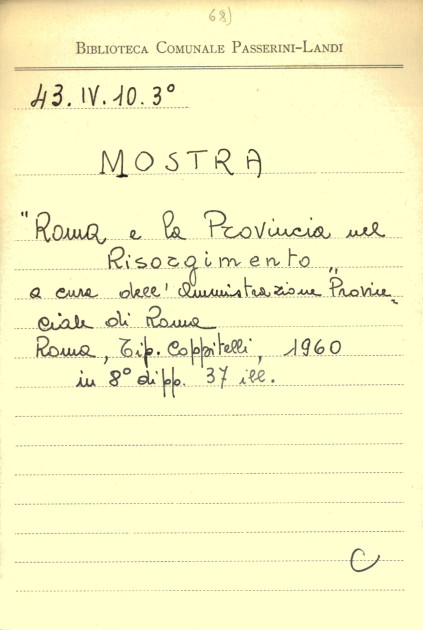 68)
BIBLIOTECA COMUNALE PASSERINI-LANDI
43.IV.10.3°
MOSTRA
"Roma e la Provincia nel
Risorgimento"
a cura dell'Amministrazione Provin-
ciale di Roma
Roma, Tip. Coppitelli, 1960
in 8° di pp. 37 ill.
C